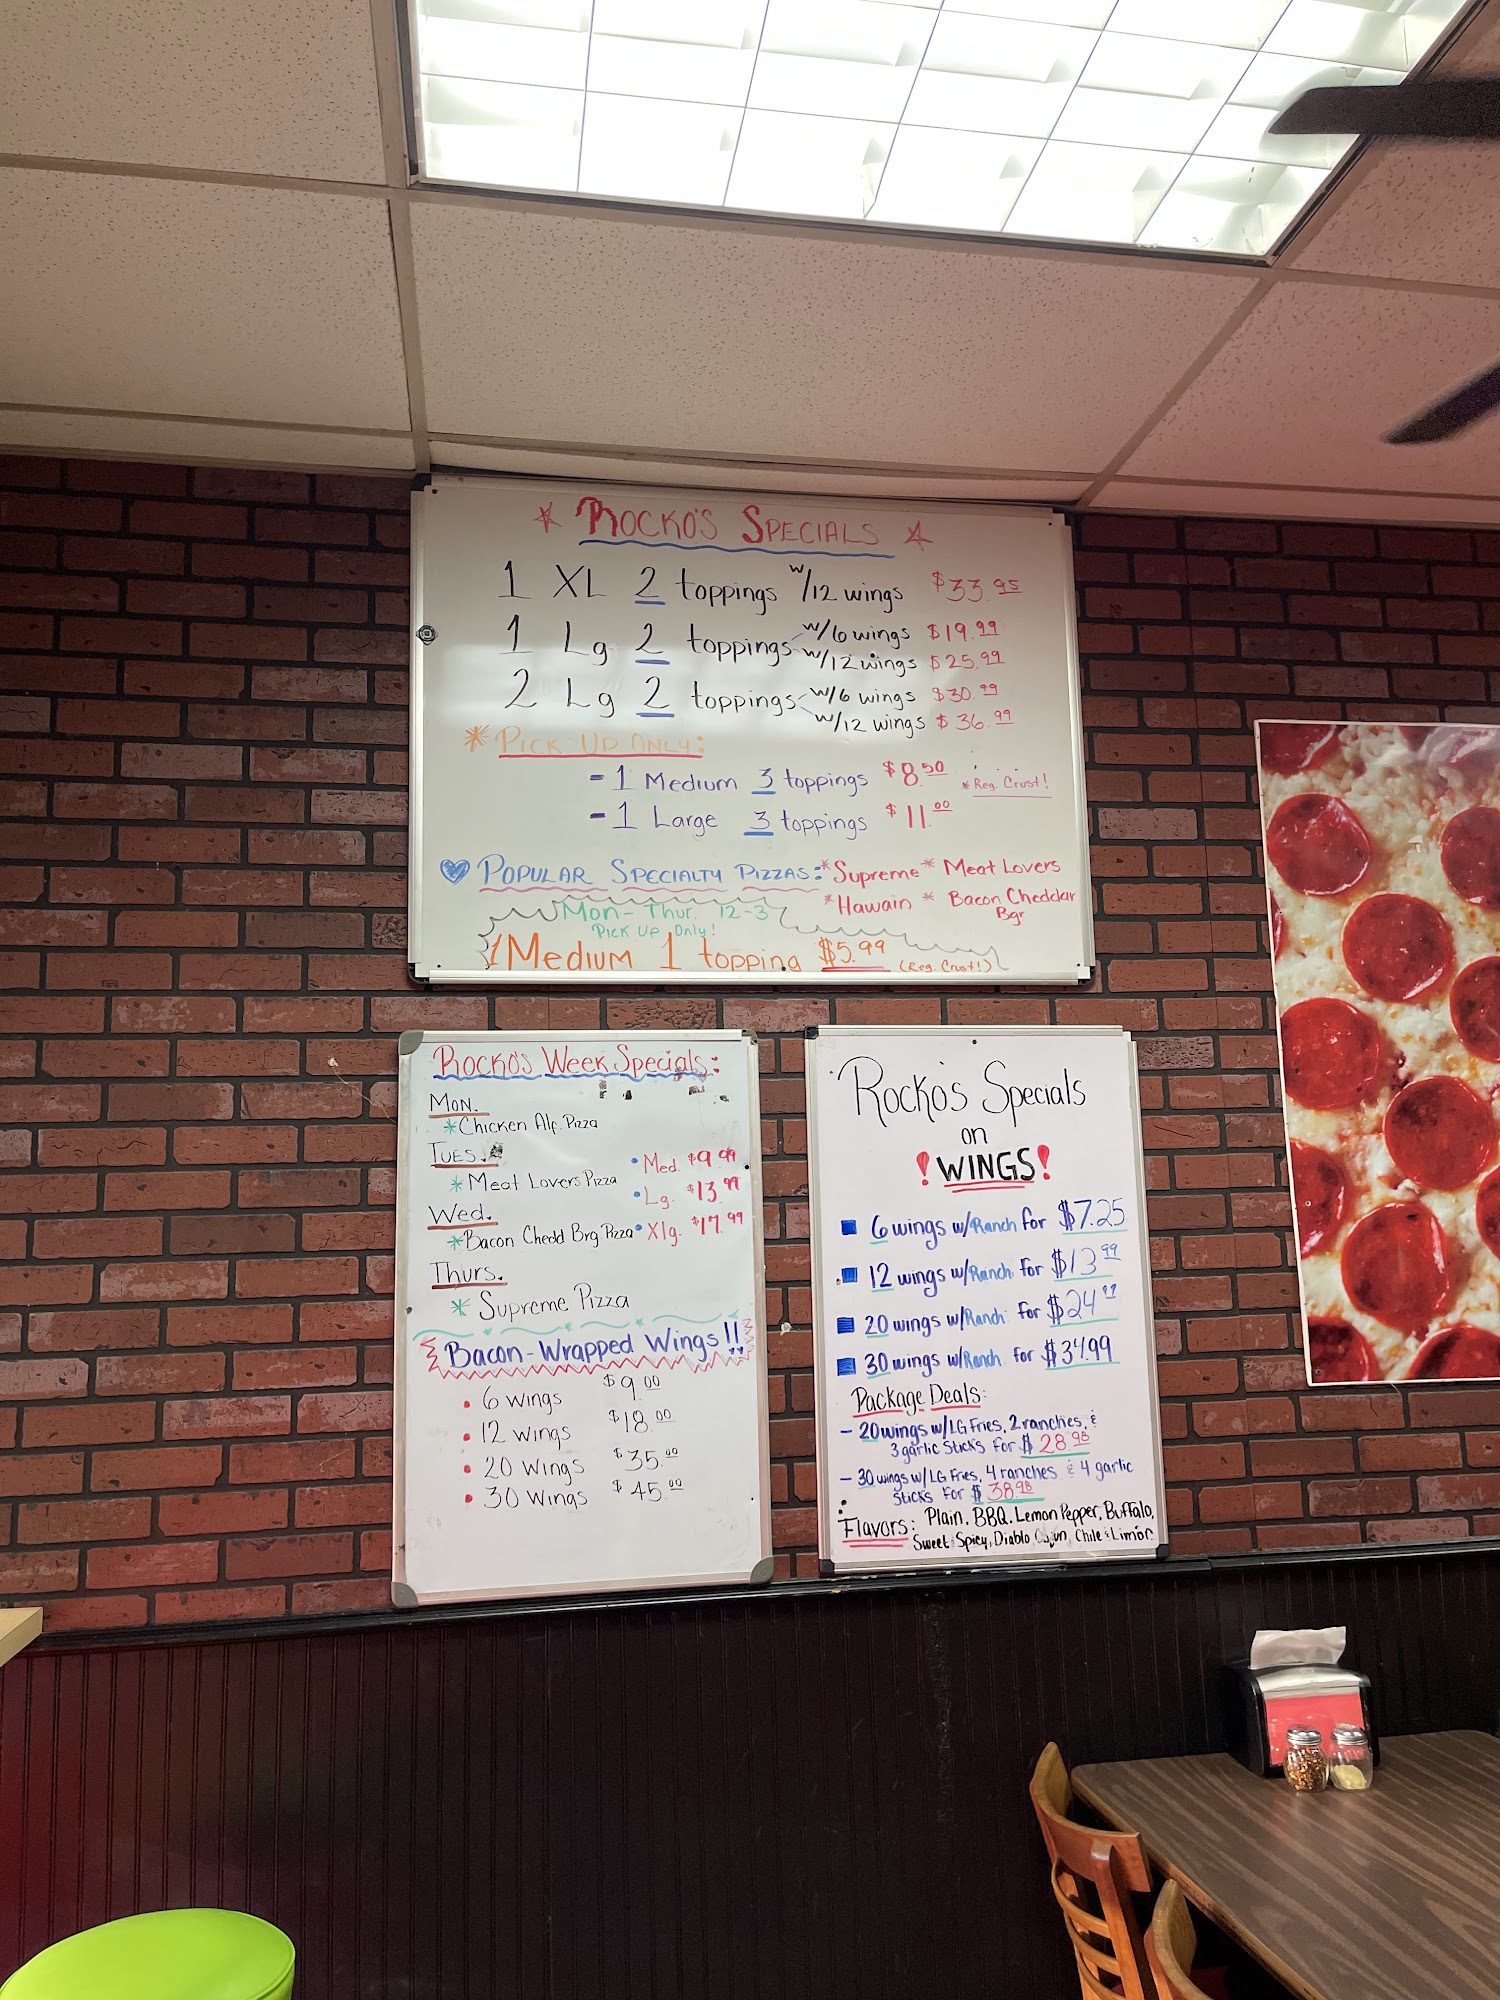 * ROCKO'S SPECIALS *
1 XL 2 toppings w/12 wings $33.95
1 Lg 2 toppings w/6 wings $19.99
w/12 wings $25.99
2 Lg 2 toppings w/6 wings $30.99
w/12 wings $36.99
* PICK-UP ONLY:
- 1 Medium 3 toppings $8.50 * Reg. Crust!
- 1 Large 3 toppings $11.00
POPULAR SPECIALTY PIZZAS: * Supreme * Meat Lovers
* Hawain * Bacon Cheddar Bgr
Mon - Thur. 12-3
Pick Up Only!
1 Medium 1 topping $5.99 (Reg. Crust!)
ROCKO'S WEEK SPECIALS:
MON.
* Chicken Alf. Pizza
TUES.
* Meat Lovers Pizza
• Med. $9.99
• Lg. $13.99
Wed.
* Bacon Chedd Brg. Pizza • Xlg. $17.99
Thurs.
* Supreme Pizza
Bacon-Wrapped Wings!!
• 6 wings $9.00
• 12 wings $18.00
• 20 wings $35.00
• 30 wings $45.00
Rocko's Specials
on
! WINGS !
6 wings w/Ranch for $7.25
12 wings w/Ranch for $13.99
20 wings w/Ranch for
30 wings w/Ranch for $34.99
Package Deals:
- 20 wings w/LG Fries, 2 ranches, &
3 garlic sticks for $28.98
- 30 wings w/LG Fries, 4 ranches & 4 garlic
sticks for $38.98
Flavors: Plain, BBQ, Lemon Pepper, Buffalo,
Sweet & Spicy, Diablo, Cajun, Chile & Limón